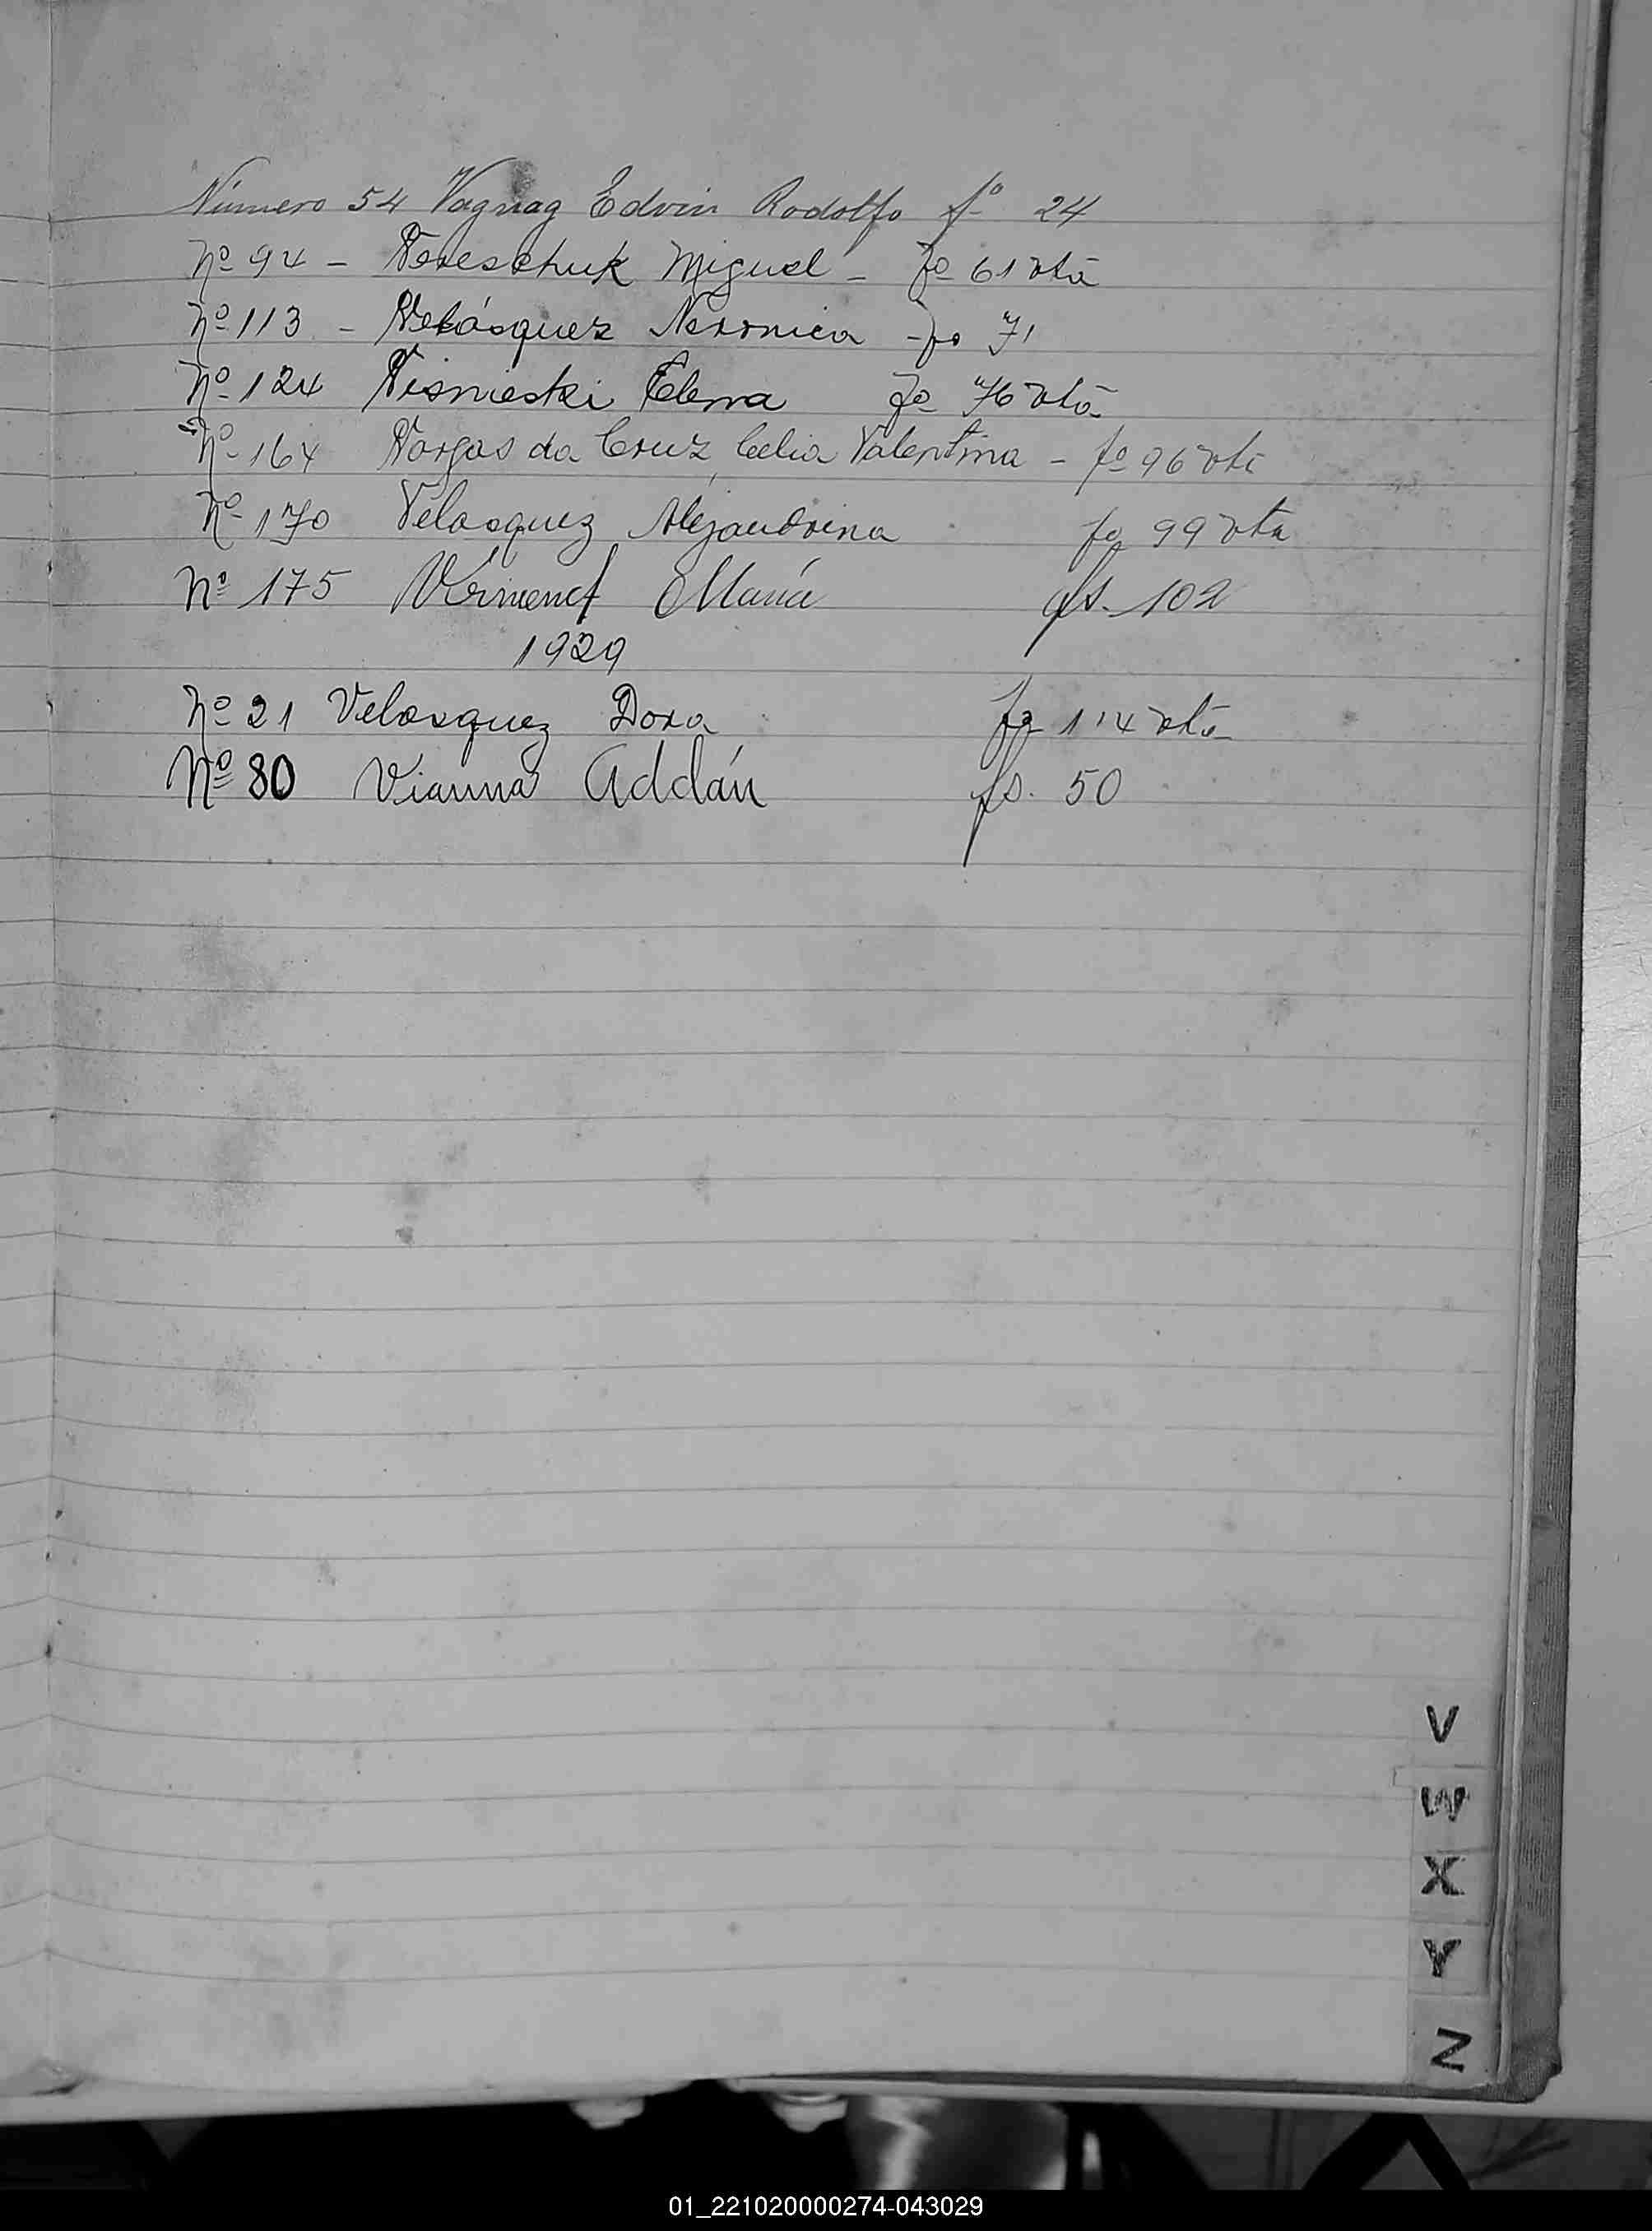 Número 54 Vagnag Edvin Rodolfo fº 24
Nº 94 - Vereschuk Miguel - fº 61 vta
Nº 113 - Velásquez Veronica - fo 71
Nº 124 Visnieski Elena fo 76 vta
Nº 164 Vargas da Cruz, Celia Valentina - fº 96 vta
Nº 170 Velasquez Alejandrina fo 99 vta
Nº 175 María fs. 102
1929
Nº 21 Velasquez Dora fo 114 vta
Nº 80 Vianna Addán fs. 50
V
W
X
Y
Z
01_221020000274-043029